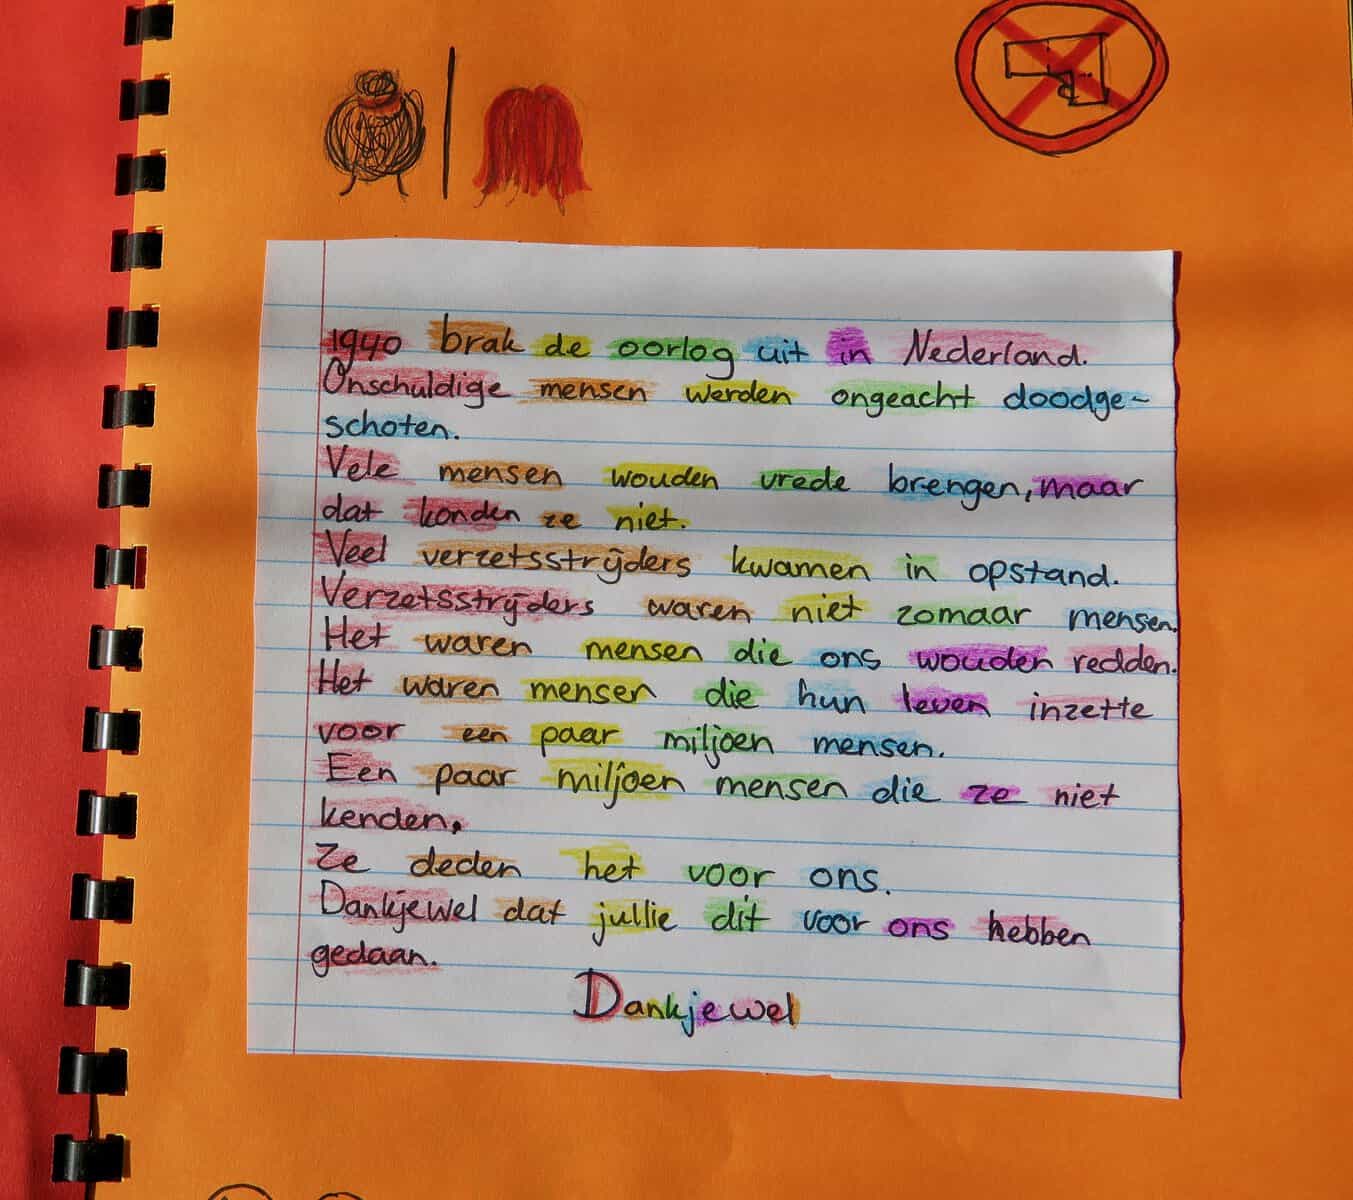 1940 brak de oorlog uit in Nederland.
Onschuldige mensen werden ongeacht doodge-
schoten.
Vele mensen wouden vrede brengen, maar
dat konden ze niet.
Veel verzetsstrijders kwamen in opstand.
Verzetsstrijders waren niet zomaar mensen.
Het waren mensen die ons wouden redden.
Het waren mensen die hun leven inzette
voor een paar miljoen mensen.
Een paar miljoen mensen die ze niet
kenden.
Ze deden het voor ons.
Dankjewel dat jullie dit voor ons hebben
gedaan.
Dankjewel